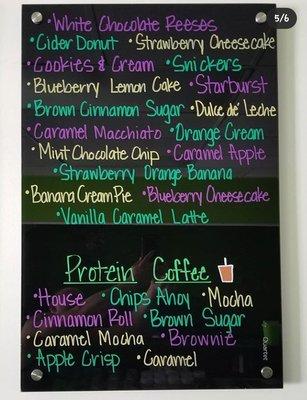 5/6
•White Chocolate Reeses
•Cider Donut •Strawberry Cheesecake
•Cookies & Cream •Snickers
•Blueberry Lemon Cake •Starburst
•Brown Cinnamon Sugar •Dulce de Leche
•Caramel Macchiato •Orange Cream
•Mint Chocolate Chip •Caramel Apple
•Strawberry Orange Banana
•Banana Cream Pie •Blueberry Cheesecake
•Vanilla Caramel Latte
Protein Coffee
•House •Chips Ahoy •Mocha
•Cinnamon Roll •Brown Sugar
•Caramel Mocha •Brownie
•Apple Crisp •Caramel
Quartet